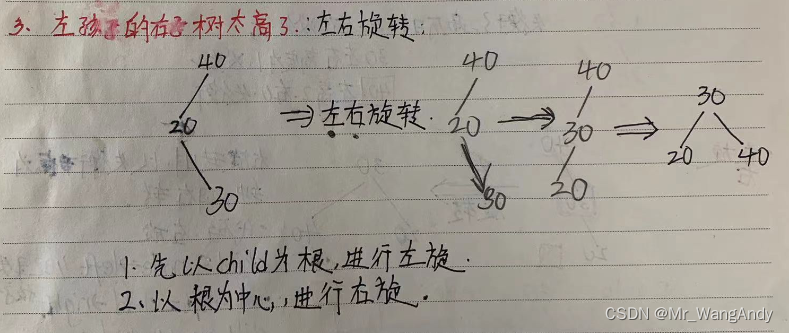 3. 左孩子的右子树太高了∴左右旋转:
40 40 40
⇒左右旋转. 30
20 20 30 20 40
30 30 20
1. 先以child为根,进行左旋.
2. 以根为中心,进行右旋.
CSDN @Mr_WangAndy